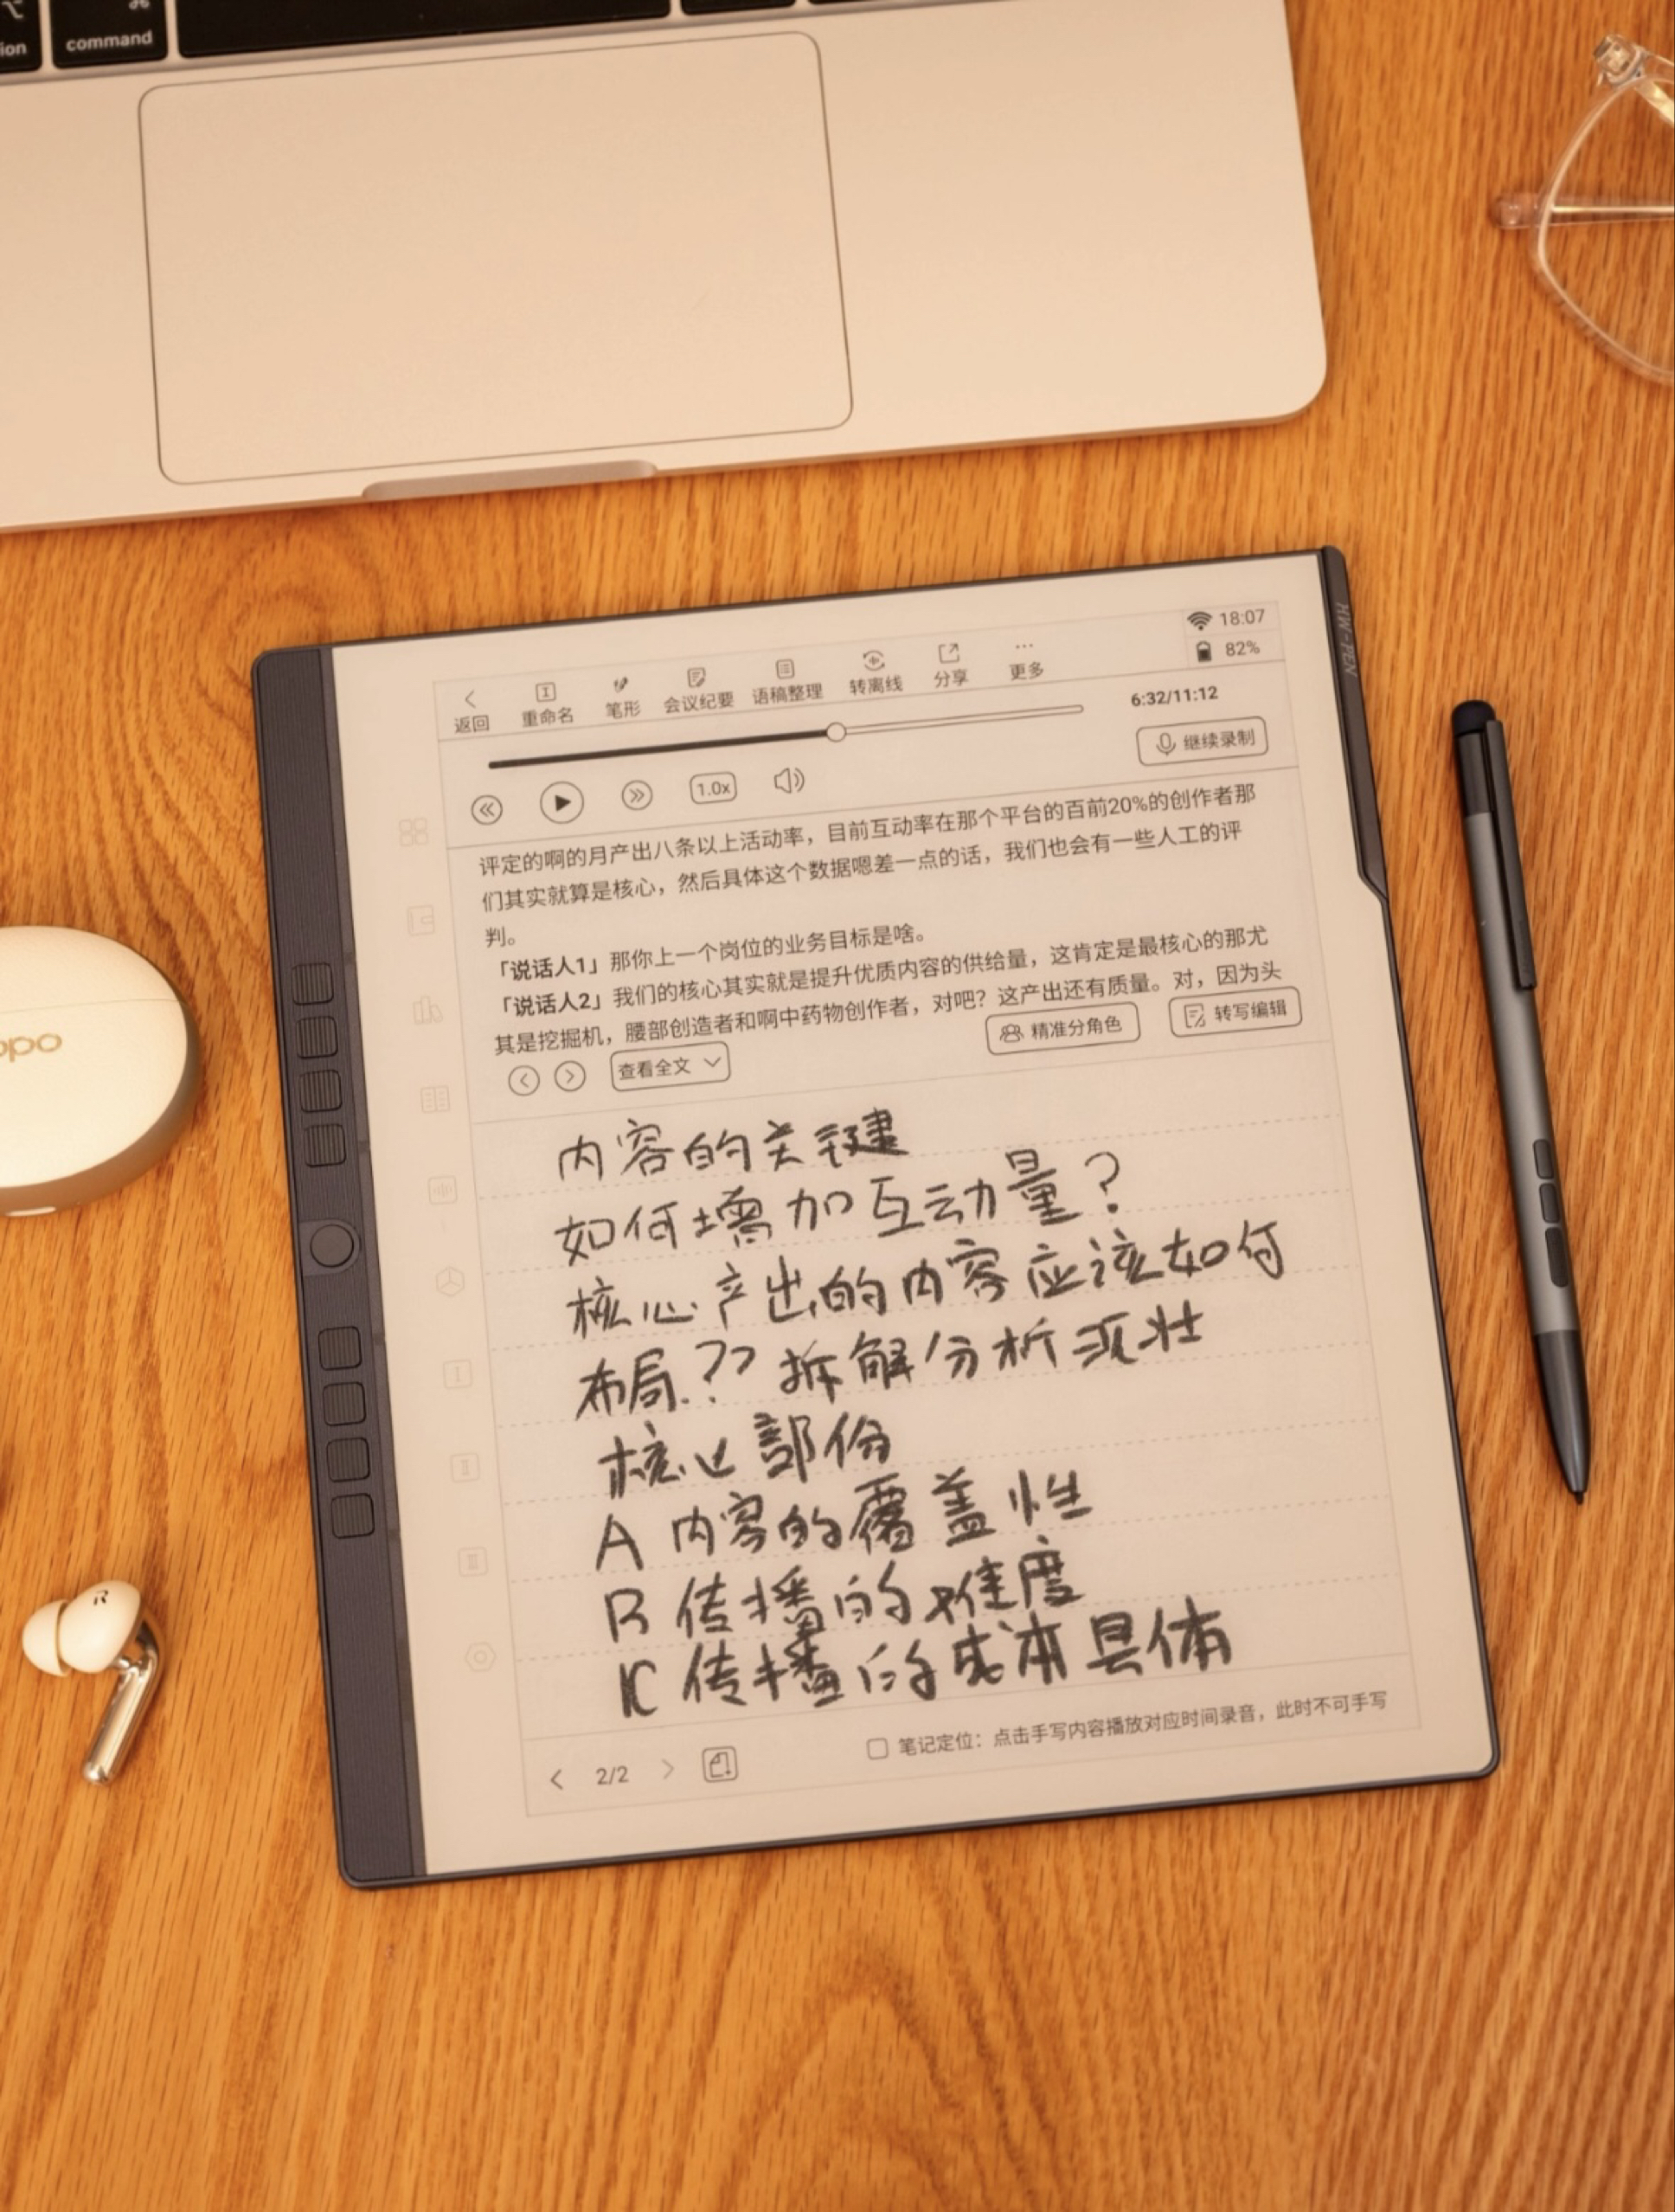 ion
⌥
command
⌘
HW-PEN
18:07
82%
返回
重命名
笔形
会议纪要
语稿整理
转离线
分享
更多
6:32/11:12
继续录制
1.0x
评定的啊的月产出八条以上活动率，目前互动率在那个平台的百前20%的创作者那
们其实就算是核心，然后具体这个数据嗯差一点的话，我们也会有一些人工的评
判。
「说话人1」那你上一个岗位的业务目标是啥。
「说话人2」我们的核心其实就是提升优质内容的供给量，这肯定是最核心的那尤
其是挖掘机，腰部创造者和啊中药物创作者，对吧？这产出还有质量。对，因为头
精准分角色
转写编辑
查看全文
内容的关键
如何增加互动量？
核心产出的内容应该如何
布局.？？拆解分析现壮
核心部份
A 内容的覆盖性
B 传播的难度
C 传播的成本具体
2/2
笔记定位：点击手写内容播放对应时间录音，此时不可手写
oppo
R